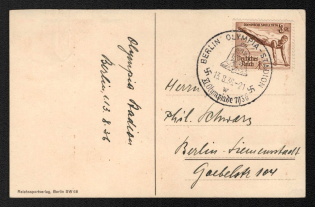 Olympia Stadion
Berlin 13.8.36
BERLIN OLYMPIA-STADION
XI. Olympiade 1936
Deutsches
Reich
Herrn
Phil. Schwarz
Berlin-Siemensstadt
Goebelstr 104
Reichssportverlag, Berlin SW 68